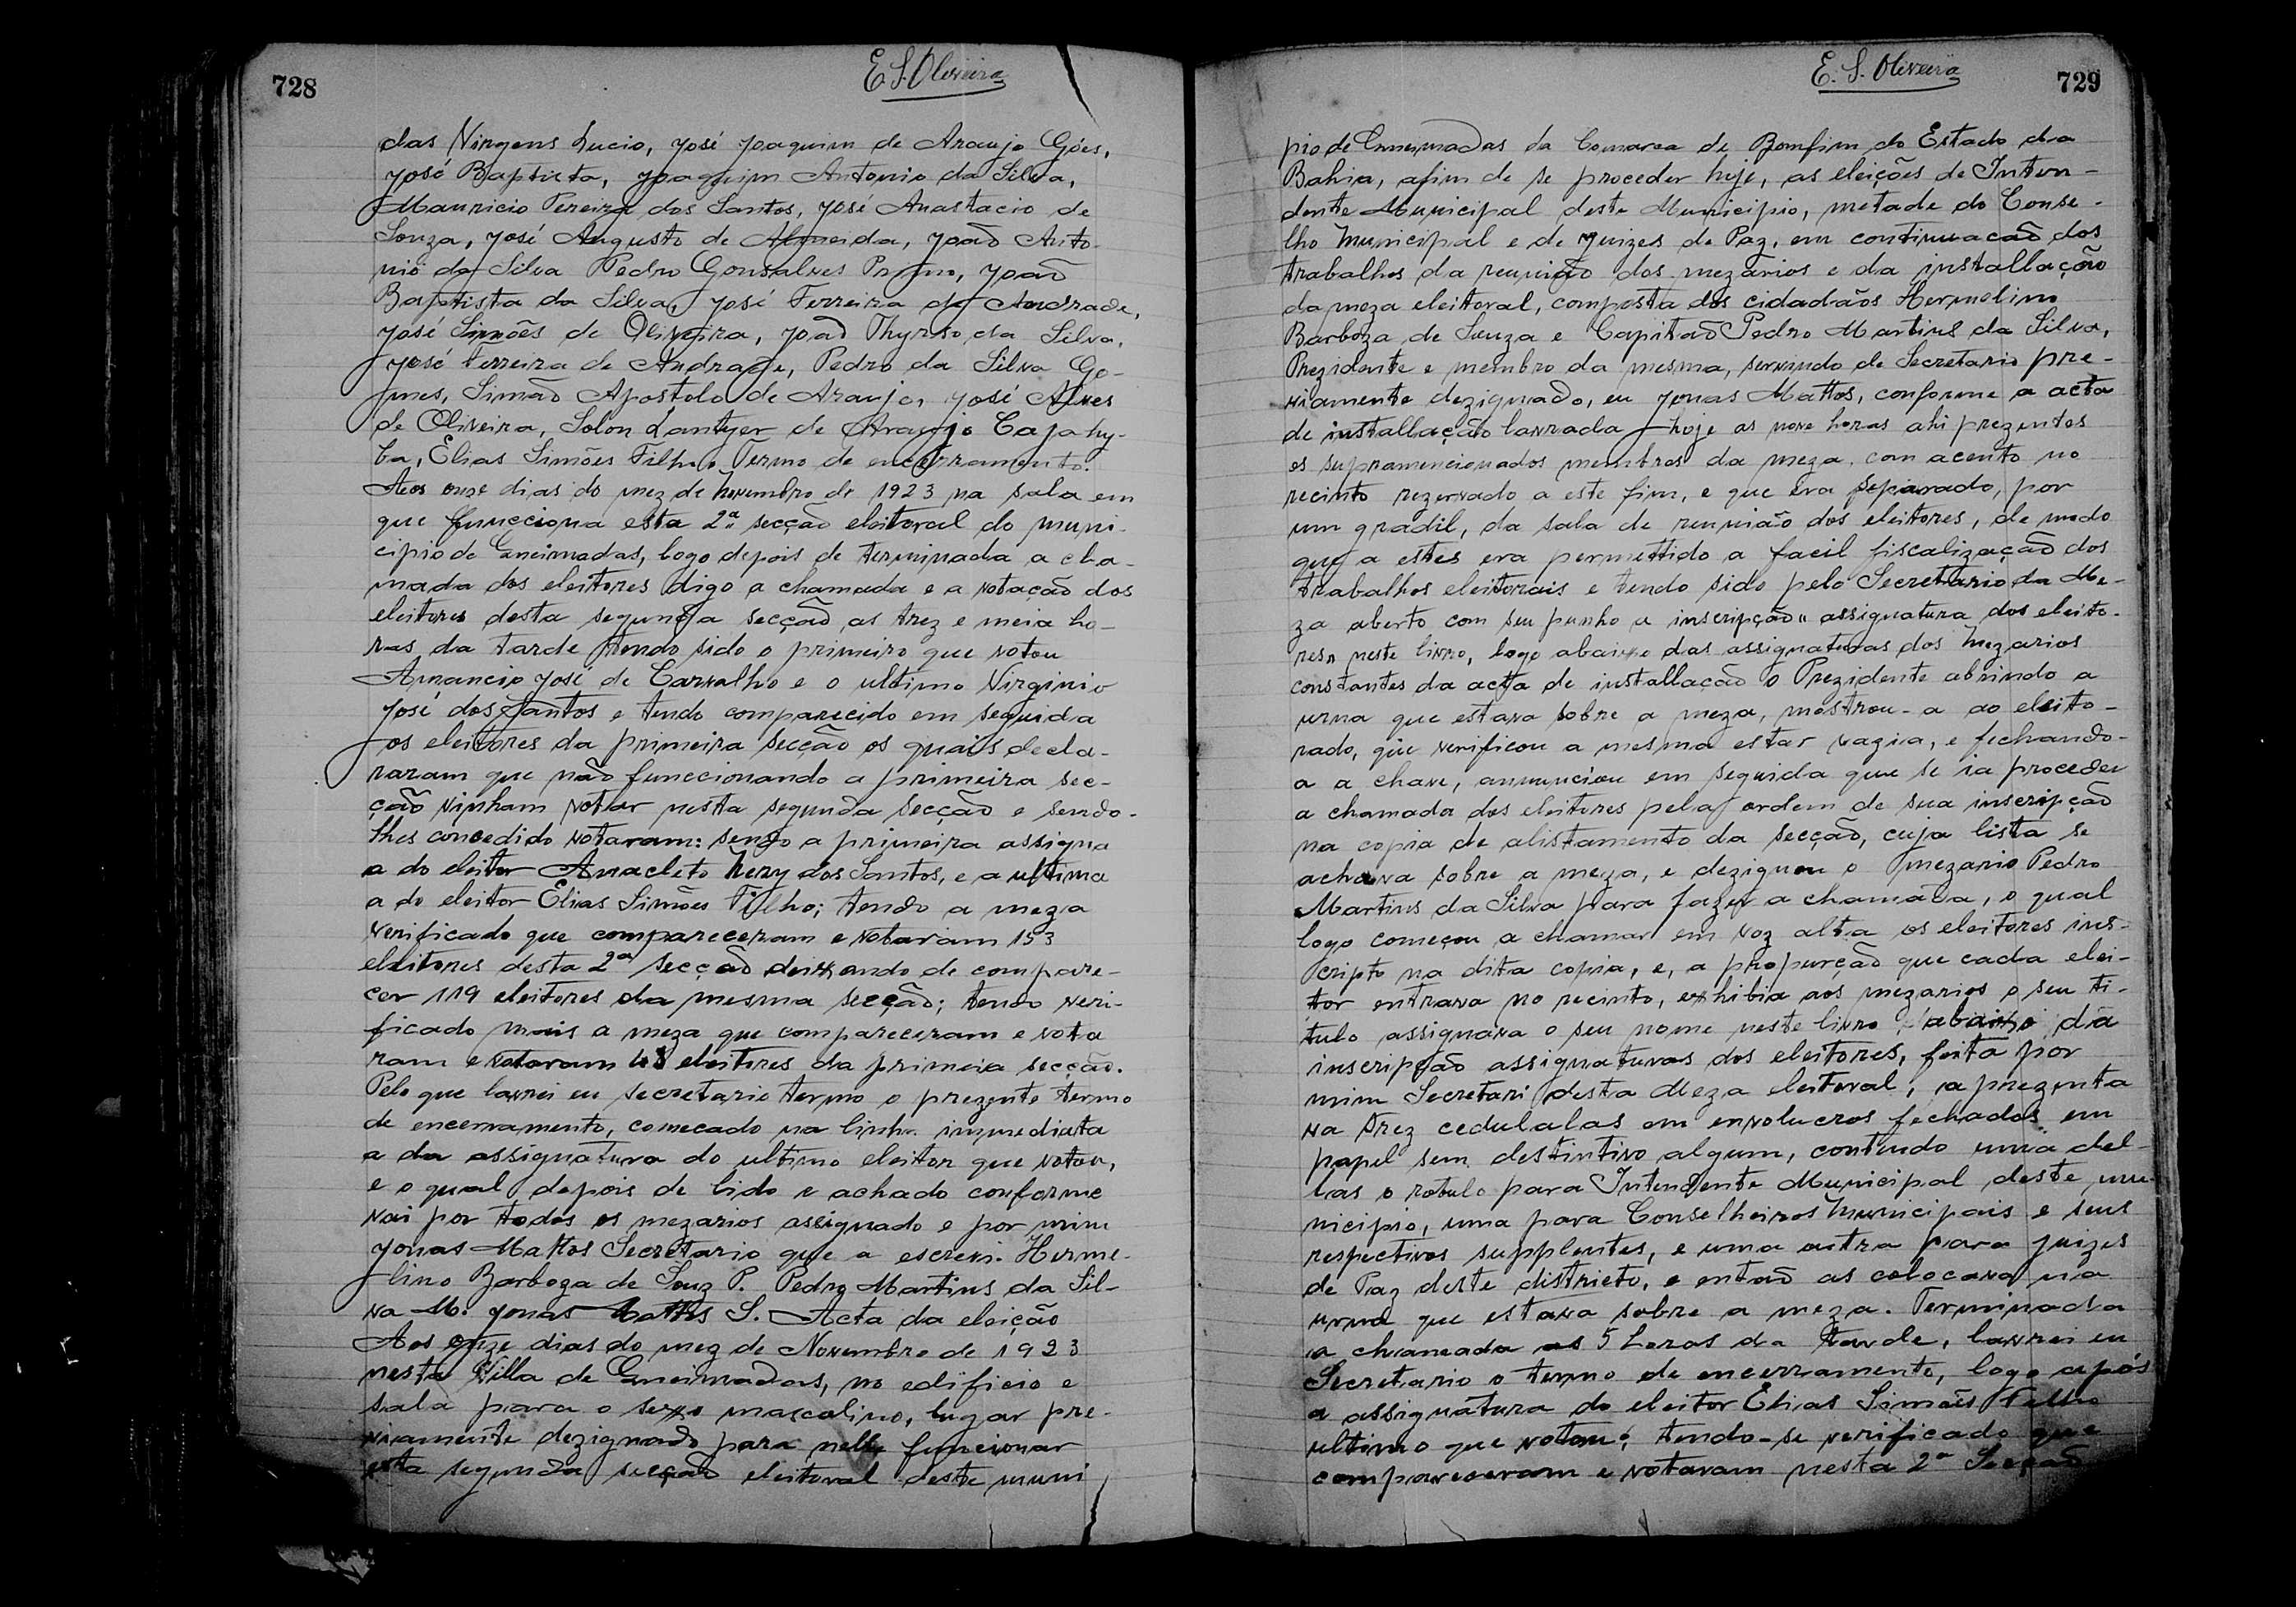 728
E. S. Oliveira
das Virgens Lucio, José Joaquim de Araujo Góes,
José Baptista, Joaquim Antonio da Silva,
Mauricio Pereira dos Santos, José Anastacio de
Souza, José Augusto de Almeida, João Anto-
nio da Silva Pedro Gonsalves Primo, João
Baptista da Silva, José Ferreira de Andrade,
José Simões de Oliveira, João Thyrso da Silva,
José Ferreira de Andrade, Pedro da Silva Go-
mes, Simão Apostolo de Araujo, José Alves
de Oliveira, Solon Lantyer de Araujo Cajahy-
ba, Elias Simões Filho. Termo de encerramento.
Aos onze dias do mez de Novembro de 1923 na sala em
que funcciona esta 2ª secção eleitoral do muni-
cipio de Queimadas, logo depois de terminada a cha-
mada dos eleitores digo a chamada e a votação dos
eleitores desta segunda secção, as trez e meia ho-
ras da tarde tendo sido o primeiro que votou
Amancio José de Carvalho e o ultimo Virginio
José dos Santos e tendo comparecido em seguida
os eleitores da primeira secção os quais decla-
raram que não funccionando a primeira sec-
ção vinham votar nesta segunda secção e sendo-
lhes concedido votaram: sendo a primeira assigna
a do eleitor Anacleto Nery dos Santos, e a ultima
a do eleitor Elias Simões Filho; tendo a meza
verificado que compareceram e votaram 153
eleitores desta 2ª secção deixando de compare-
cer 119 eleitores da mesma secção; tendo veri-
ficado mais a meza que compareceram e vota
ram e votaram 48 eleitores da primeira secção.
Pelo que lavrei eu secretario termo o prezente termo
de encerramento, comecado na linha immediata
a da assignatura do ultimo eleitor que votou,
e o qual depois de lido e achado conforme
vai por todos os mezarios assignado e por mim
Jonas Mattos Secretario que a escrevi. Herme-
lino Barboza de Souz P. Pedro Martins da Sil-
va M. Jonas Mattos S. Acta da eleição
Aos onze dias do mez de Novembro de 1923
nesta Villa de Queimadas, no edificio e
sala para o sexo mascolino, lugar pre-
viamente dezignado para nelle funcionar
esta segunda secção eleitoral deste muni
E. S. Oliveira
729
pio de Queimadas da Comarca de Bomfim do Estado da
Bahia, afim de se proceder hoje, as eleições de Inten-
dente Municipal deste Municipio, metade do Conse-
lho Municipal e de Juizes de Paz, em continuacão dos
trabalhos da reunião dos mezarios e da installação
da meza eleitoral, composta dos cidadãos Hermelino
Barboza de Souza e Capitão Pedro Martins da Silva,
Prezidente e membro da mesma, servindo de Secretario pre-
viamente dezignado, eu Jonas Mattos, conforme a acta
de installação lavrada hoje as nove horas ahi prezentes
os supramencionados membros da meza, com acento no
recinto rezervado a este fim, e que era separado, por
um gradil, da sala de reunião dos eleitores, de modo
que a estes era permettido a facil fiscalização dos
trabalhos eleitorais e tendo sido pelo Secretario da Me-
za aberto com seu punho a inscripção "assignatura dos eleito-
res" neste livro, logo abaixo das assignaturas dos Mezarios
constantes da acta de installacão o Prezidente abrindo a
urna que estava sobre a meza, mostrou-a ao eleito-
rado, que verificou a mesma estar vazia, e fechando-
a a chave, annunciou em seguida que se ia proceder
a chamada dos eleitores pela ordem de sua inscripção
na copia de alistamento da secção, cuja lista se
achava sobre a meza, e dezignou o mezario Pedro
Martins da Silva para fazer a chamada, o qual
logo começou a chamar em voz alta os eleitores ins-
cripto na dita copia, e, a proporção que cada elei-
tor entrava no recinto, exhibia aos mezarios o seu ti-
tulo assignava o seu nome neste livro abaixo da
inscripção assignaturas dos eleitores, feita por
mim Secretari desta Meza eleitoral, a prezenta
va trez cedulalas em envolucros fechados em
papel sem destintivo algum, contendo uma del-
las o rotulo para Intendente Municipal deste mu-
nicipio, uma para Conselheiros Municipais e seus
respectivos supplentes, e uma outra para juizes
de Paz deste districto, e então as colocava na
urna que estava sobre a meza. Terminada
a chamada as 5 horas da tarde, lavrei eu
Secretario o termo de encerramento, logo após
a assignatura do eleitor Elias Simões Filho
ultimo que votou; tendo-se verificado que
compareceram e votaram nesta 2ª Secção